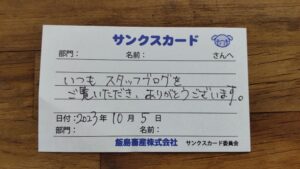 サンクスカード
部門： 名前： さんへ
いつも スタッフブログを
ご覧いただき、ありがとうございます。
日付：2023年 10月 5日
部門： 名前：
飯島畜産株式会社 サンクスカード委員会